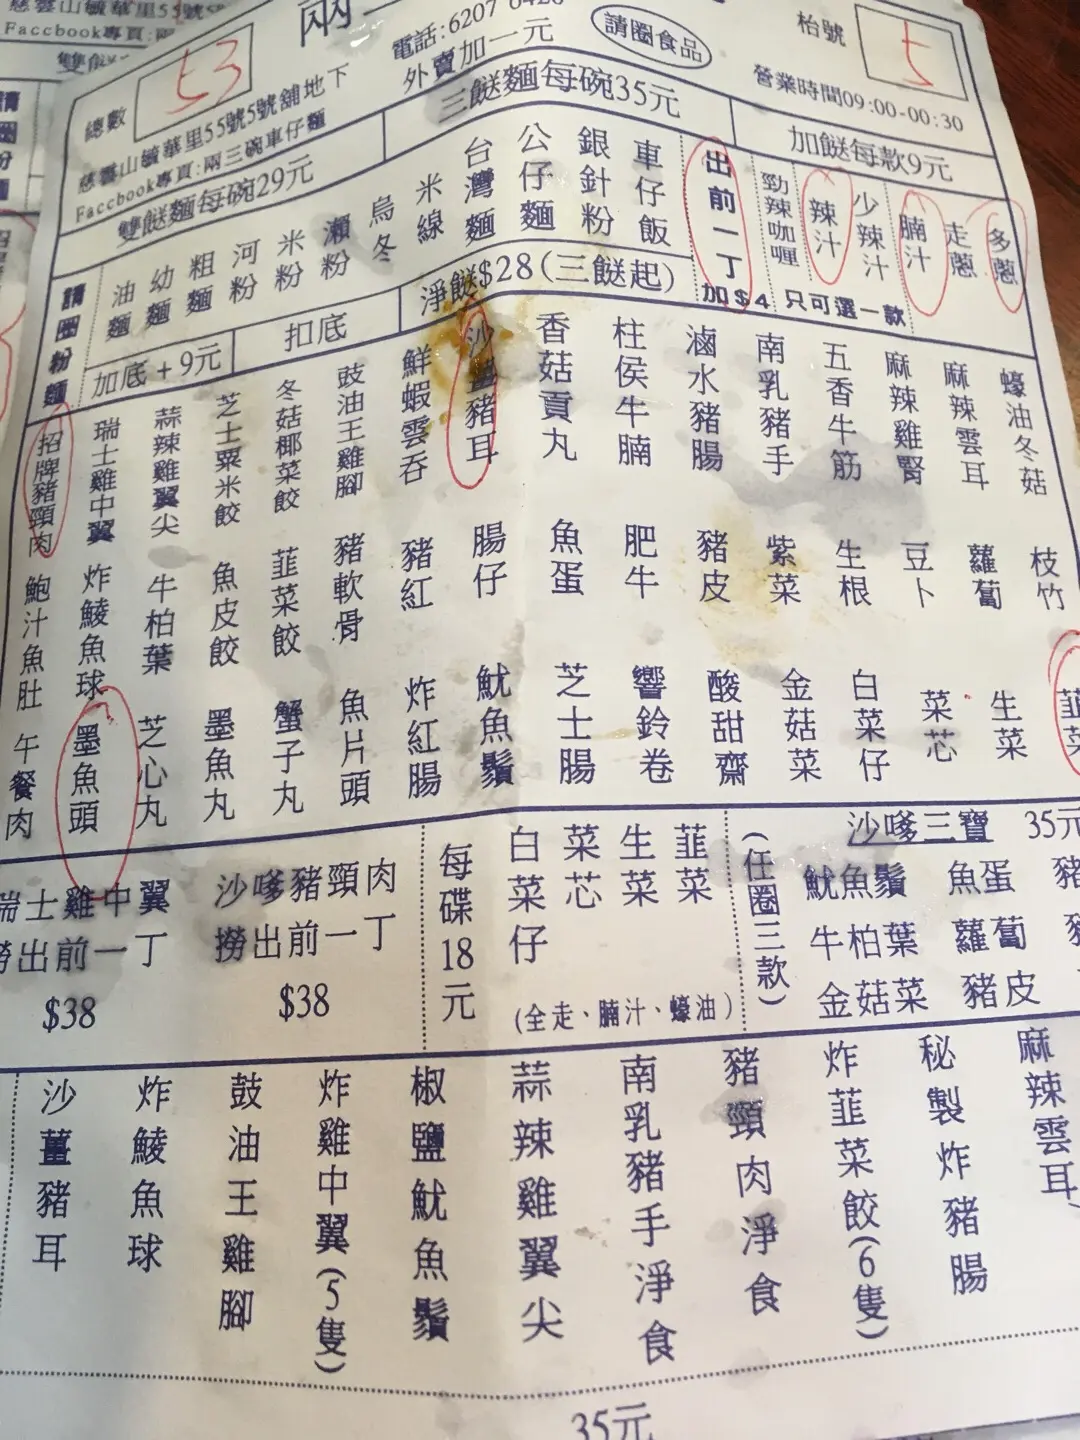 電話:6207 0420
外賣加一元
請圈食品
枱號
5
總數
53
慈雲山毓華里55號5號舖地下
Faccbook專頁:兩三碗車仔麵
營業時間09:00-00:30
雙餸麵每碗29元
三餸麵每碗35元
加餸每款9元
請圈粉麵
油麵
幼麵
粗麵
河粉
米粉
瀨粉
烏冬
米線
台灣麵
公仔麵
銀針粉
車仔飯
出前一丁
加$4
勁辣咖喱
辣汁
少辣汁
腩汁
走蔥
多蔥
只可選一款
加底+9元
扣底
淨餸$28(三餸起)
招牌豬頸肉
瑞士雞中翼
蒜辣雞翼尖
芝士粟米餃
冬菇椰菜餃
豉油王雞腳
鮮蝦雲吞
沙薑豬耳
香菇貢丸
柱侯牛腩
滷水豬腸
南乳豬手
五香牛筋
麻辣雞腎
麻辣雲耳
蠔油冬菇
鮑汁魚肚
炸鯪魚球
牛柏葉
魚皮餃
韮菜餃
豬軟骨
豬紅
腸仔
魚蛋
肥牛
豬皮
紫菜
生根
豆卜
蘿蔔
枝竹
午餐肉
墨魚頭
芝心丸
墨魚丸
蟹子丸
魚片頭
炸紅腸
魷魚鬚
芝士腸
響鈴卷
酸甜齋
金菇菜
白菜仔
菜芯
生菜
韮菜
瑞士雞中翼
撈出前一丁
$38
沙嗲豬頸肉
撈出前一丁
$38
每碟18元
白菜仔
菜芯
生菜
韮菜
(全走、腩汁、蠔油)
(任圈三款)
沙嗲三寶 35元
魷魚鬚 魚蛋 豬
牛柏葉 蘿蔔 豬
金菇菜 豬皮
沙薑豬耳
炸鯪魚球
鼓油王雞腳
炸雞中翼(5隻)
椒鹽魷魚鬚
蒜辣雞翼尖
南乳豬手淨食
豬頸肉淨食
炸韮菜餃(6隻)
秘製炸豬腸
麻辣雲耳
35元